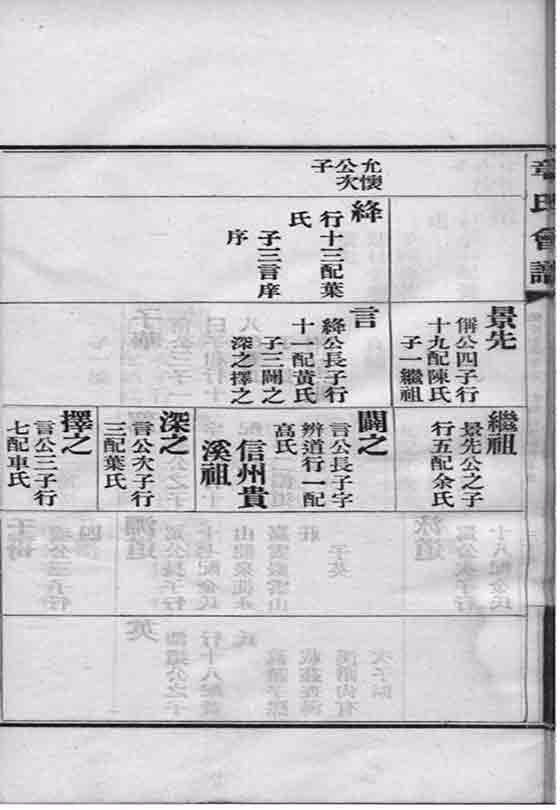 章氏會譜
允懷
公次
子
絳
行十三配葉
氏
子三言庠
序
景先
偁公四子行
十九配陳氏
子一繼祖
言
絳公長子行
十一配黃氏
子三闢之
深之擇之
繼祖
景先公之子
行五配余氏
闢之
言公長子字
辨道行一配
高氏
信州貴
溪祖
深之
言公次子行
三配葉氏
擇之
言公三子行
七配車氏